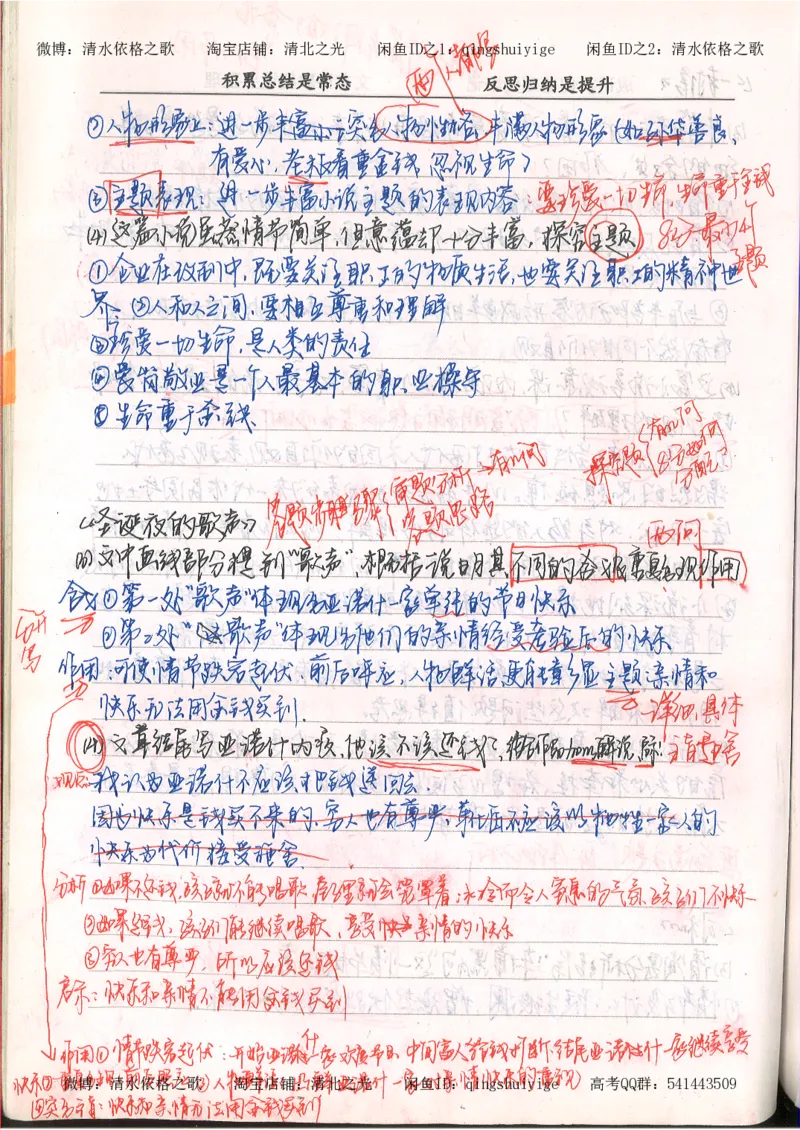 微博：清水依格之歌 淘宝店铺：清北之光 闲鱼ID之1：qingshuiyige 闲鱼ID之2：清水依格之歌
两个都写
积累总结是常态 反思归纳是提升
②人物形象上：进一步丰富小说人物性格，丰满人物形象（如善良、
有爱心，老板看重金钱，忽视生命）
③主题表现：进一步丰富小说主题的表现内容：要珍爱一切生命，生命重于金钱
(4)这篇小说虽然情节简单，但意蕴却十分丰富，探究主题 8分最力4个主题
①企业在改制中，既要关注职工的物质生活，也要关注职工的精神世
界、②人和人之间，要相互尊重和理解
③珍爱一切生命，是人类的责任
④爱岗敬业是一个人最基本的职业操守
⑤生命重于金钱
探究题 有几问 8分如何分配？
答题步骤 审题分析→有几问 答题思路
《圣诞夜的歌声》
两问
(1)文中画线部分提到"歌声"，概括说明其不同的含义及表现作用
含义①第一处"歌声"体现亚诺什一家单纯的节日快乐
②第二处"歌声"体现出他们的亲情经受考验后的快乐
作用：可使情节跌宕起伏，前后呼应，人物鲜活，更能彰显主题亲情和
快乐无法用金钱买到. 详细，具体
(4)文章结尾写亚诺什的孩，他该不该还钱？
观点：我认为亚诺什不应该把钱送回去.
因为快乐是钱买不来的，穷人也有尊严，不应该以牺牲一家人的
快乐为代价接受施舍
分析①如果不还钱，孩子们不能唱歌，房里就会笼罩着冰冷而令人窒息的气氛，孩子们不快乐
②如果还钱，孩子们能继续唱歌，享受亲情的快乐
③穷人也有尊严，所以应该还钱
启示：快乐和亲情不能用金钱买到
作用①情节跌宕起伏：开始亚诺什一家欢度节日，中间富人给钱打断，结尾亚诺什一家继续享受
快乐
微博：清水依格之歌 淘宝店铺：清北之光 闲鱼ID之1：qingshuiyige 高考QQ群：541443509
快乐和亲情无法用金钱买到